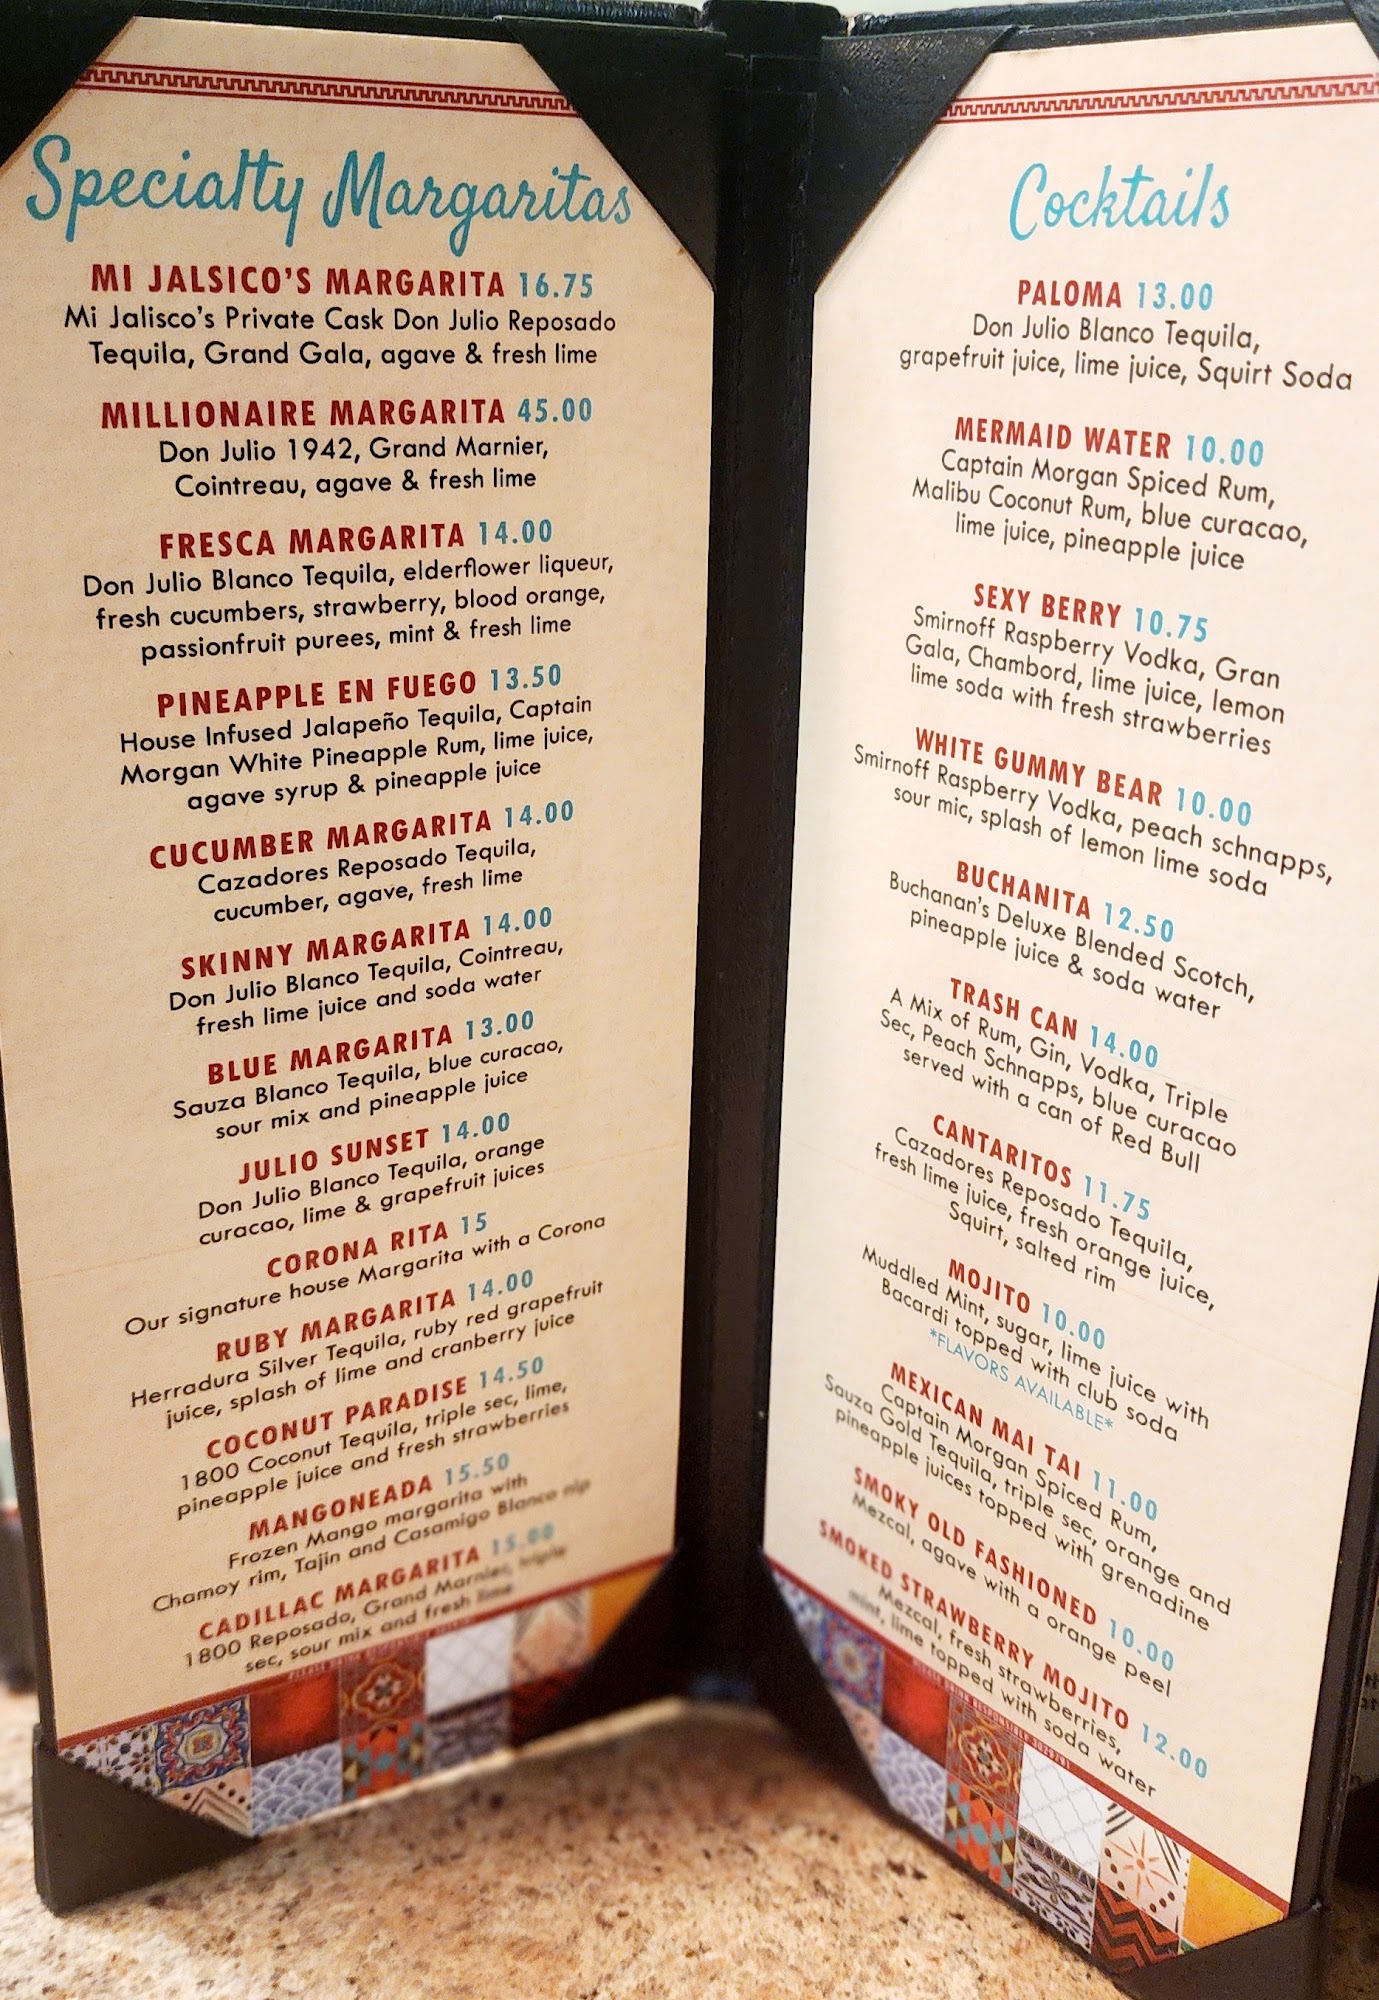 Specialty Margaritas
MI JALSICO'S MARGARITA 16.75
Mi Jalisco's Private Cask Don Julio Reposado
Tequila, Grand Gala, agave & fresh lime
MILLIONAIRE MARGARITA 45.00
Don Julio 1942, Grand Marnier,
Cointreau, agave & fresh lime
FRESCA MARGARITA 14.00
Don Julio Blanco Tequila, elderflower liqueur,
fresh cucumbers, strawberry, blood orange,
passionfruit purees, mint & fresh lime
PINEAPPLE EN FUEGO 13.50
House Infused Jalapeño Tequila, Captain
Morgan White Pineapple Rum, lime juice,
agave syrup & pineapple juice
CUCUMBER MARGARITA 14.00
Cazadores Reposado Tequila,
cucumber, agave, fresh lime
SKINNY MARGARITA 14.00
Don Julio Blanco Tequila, Cointreau,
fresh lime juice and soda water
BLUE MARGARITA 13.00
Sauza Blanco Tequila, blue curacao,
sour mix and pineapple juice
JULIO SUNSET 14.00
Don Julio Blanco Tequila, orange
curacao, lime & grapefruit juices
CORONA RITA 15
Our signature house Margarita with a Corona
RUBY MARGARITA 14.00
Herradura Silver Tequila, ruby red grapefruit
juice, splash of lime and cranberry juice
COCONUT PARADISE 14.50
1800 Coconut Tequila, triple sec, lime,
pineapple juice and fresh strawberries
MANGONEADA 15.50
Frozen Mango margarita with
Chamoy rim, Tajin and Casamigo Blanco nip
CADILLAC MARGARITA 15.00
1800 Reposado, Grand Marnier, triple
sec, sour mix and fresh lime
Cocktails
PALOMA 13.00
Don Julio Blanco Tequila,
grapefruit juice, lime juice, Squirt Soda
MERMAID WATER 10.00
Captain Morgan Spiced Rum,
Malibu Coconut Rum, blue curacao,
lime juice, pineapple juice
SEXY BERRY 10.75
Smirnoff Raspberry Vodka, Gran
Gala, Chambord, lime juice, lemon
lime soda with fresh strawberries
WHITE GUMMY BEAR 10.00
Smirnoff Raspberry Vodka, peach schnapps,
sour mic, splash of lemon lime soda
BUCHANITA 12.50
Buchanan's Deluxe Blended Scotch,
pineapple juice & soda water
TRASH CAN 14.00
A Mix of Rum, Gin, Vodka, Triple
Sec, Peach Schnapps, blue curacao
served with a can of Red Bull
CANTARITOS 11.75
Cazadores Reposado Tequila,
fresh lime juice, fresh orange juice,
Squirt, salted rim
MOJITO 10.00
Muddled Mint, sugar, lime juice with
Bacardi topped with club soda
*FLAVORS AVAILABLE*
MEXICAN MAI TAI 11.00
Captain Morgan Spiced Rum,
Sauza Gold Tequila, triple sec, orange and
pineapple juices topped with grenadine
SMOKY OLD FASHIONED 10.00
Mezcal, agave with a orange peel
SMOKED STRAWBERRY MOJITO 12.00
Mezcal, fresh strawberries,
mint, lime topped with soda water
PLEASE DRINK RESPONSIBLY